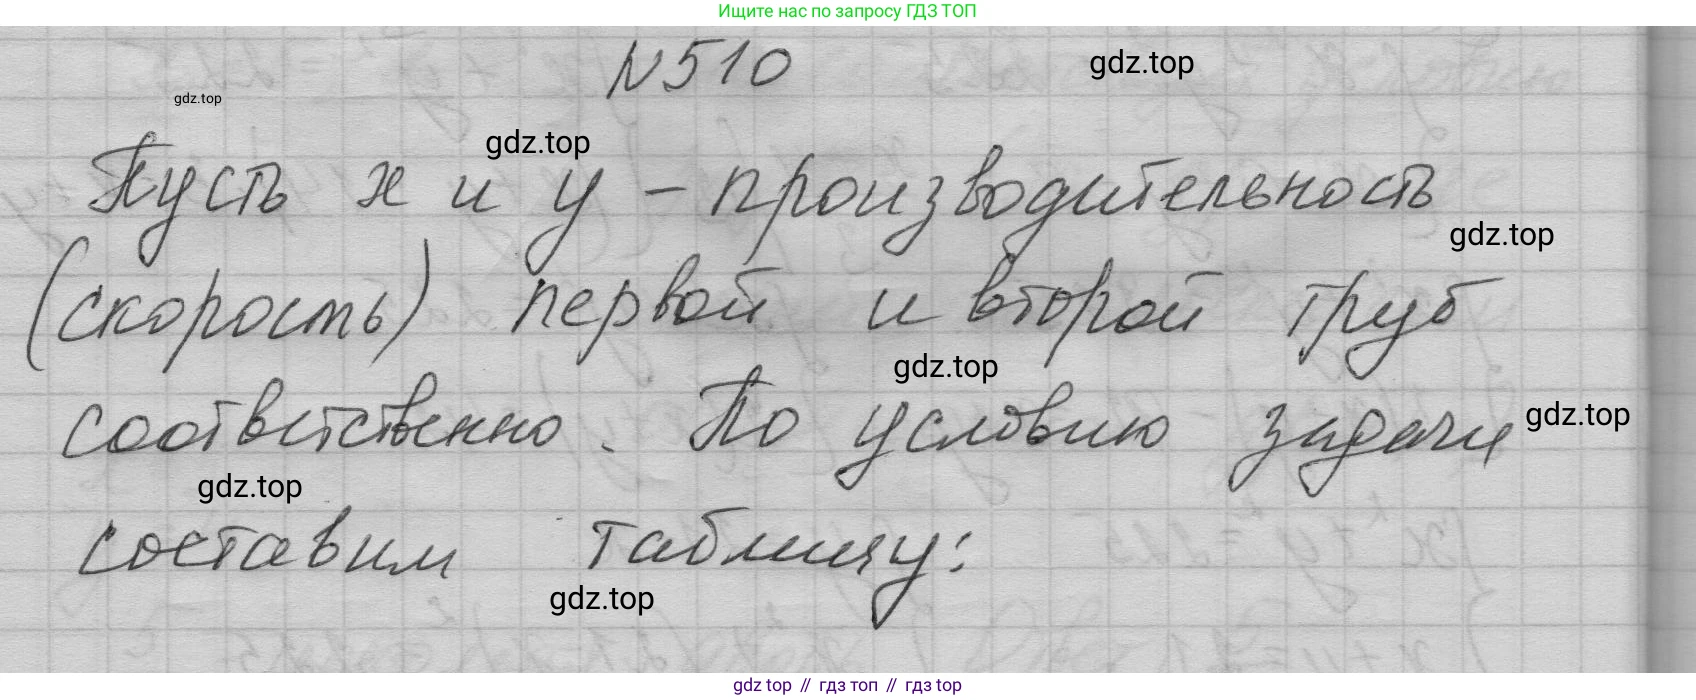 Ищите нас по запросу ГДЗ ТОП
№510
gdz.top
gdz.top
gdz.top
Пусть х и у – производительность
gdz.top
(скорость) первой и второй труб
gdz.top
соответственно. По условию задачи
gdz.top
gdz.top
составим таблицу:
gdz.top
gdz top // гдз топ // gdz top